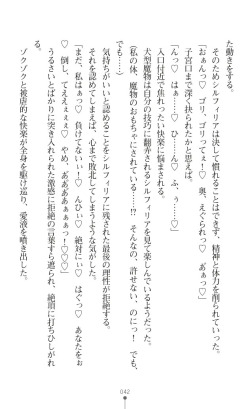 た動きをする。
そのためシルフィリアは決して慣れることはできず、精神と体力を削られていった。
「おぁんっ♡　ゴリ、ゴリってぇ！♡　奥、えぐられっ♡　あぁっ♡」
子宮口まで深く抉られたかと思えば、
「んっ♡　はぁ……♡　ひ、ん♡　ふ、ぅ……♡」
入口付近で焦れったい快楽に悩まされる。
犬型魔物は自分の技巧に翻弄されるシルフィリアを見て楽しんでいるようだった。
（私の体、魔物のおもちゃにされている……!?　そんなの、許せない、のにっ！　でも、でも……）
気持ちがいいと認めることをシルフィリアに残された最後の理性が拒絶する。
それを認めてしまえば、心まで敗北してしまうような気がした。
「まだ、私はぁっ♡　負けてないっ！♡　んひぃっ♡　絶対にぃ♡　はぐっ♡　あなたを♡　倒し、てえぇぇぇ♡　やめ、ああああぁぁぁっ！♡♡♡」
うるさいとばかりに突き入れられた激感に拒絶の言葉すら遮られ、絶頂に打ちひしがれる。
ゾクゾクと被虐的な快楽が全身を駆け巡り、愛液を噴き出した。
042